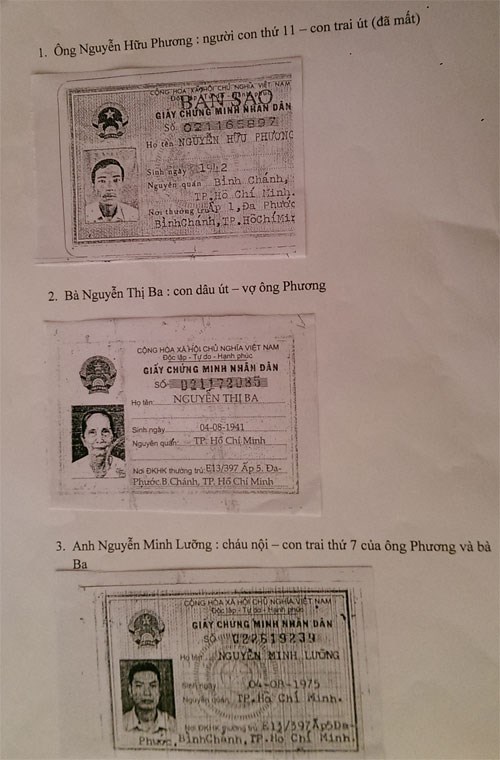 1. Ông Nguyễn Hữu Phương : người con thứ 11 – con trai út (đã mất)
CỘNG HÒA XÃ HỘI CHỦ NGHĨA VIỆT NAM
BẢN SAO
GIẤY CHỨNG MINH NHÂN DÂN
Số 021165897
Họ tên NGUYỄN HỮU PHƯƠNG
Sinh ngày 1942
Nguyên quán Bình Chánh,
TP.Hồ Chí Minh.
Nơi thường trú Ấp 1, Đa Phước
BìnhChánh, TP.HồChíMi
2. Bà Nguyễn Thị Ba : con dâu út – vợ ông Phương
CỘNG HÒA XÃ HỘI CHỦ NGHĨA VIỆT NAM
Độc lập - Tự do - Hạnh phúc
GIẤY CHỨNG MINH NHÂN DÂN
SỐ 021172085
Họ tên: NGUYỄN THỊ BA
Sinh ngày 04-08-1941
Nguyên quán: TP. Hồ Chí Minh
Nơi ĐKHK thường trú: E13/397 Ấp 5. Đa-
Phước B.Chánh, TP. Hồ Chí Minh
3. Anh Nguyễn Minh Lưỡng : cháu nội – con trai thứ 7 của ông Phương và bà
Ba
CỘNG HÒA XÃ HỘI CHỦ NGHĨA VIỆT NAM
Độc lập - Tự do - Hạnh phúc
GIẤY CHỨNG MINH NHÂN DÂN
SỐ 022619239
Họ tên NGUYỄN MINH LƯỠNG
Sinh ngày 04-08-1975
Nguyên quán TP.Hồ Chí Minh.
Nơi ĐKHK thường trú E13/397 Ấp5Đa-
Phước, BìnhChánh, TP.Hồ Chí Minh.